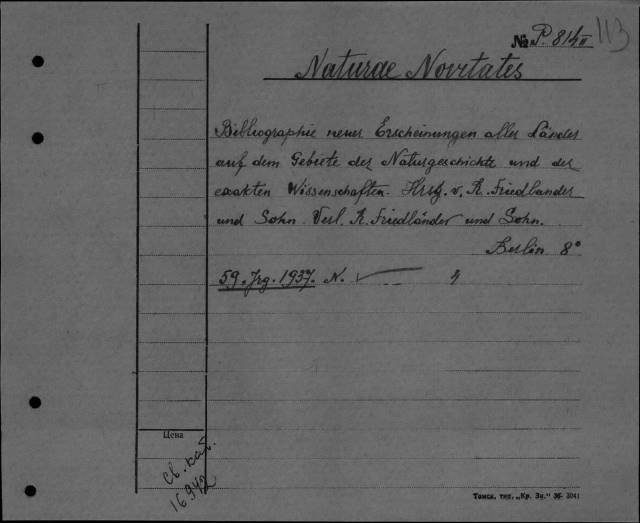 № P. 814II 113
Naturae Novitates
Bibliographie neuer Erscheinungen aller Länder
auf dem Gebiete der Naturgeschichte und der
exakten Wissenschaften. Hrsg. v. R. Friedlander
und Sohn Verl. R. Friedländer und Sohn.
Berlin 8°
59. Jrg. 1937. N.
Цена
Св. кат.
16942
Томск, тип. „Кр. Зн.“ 36- 3041